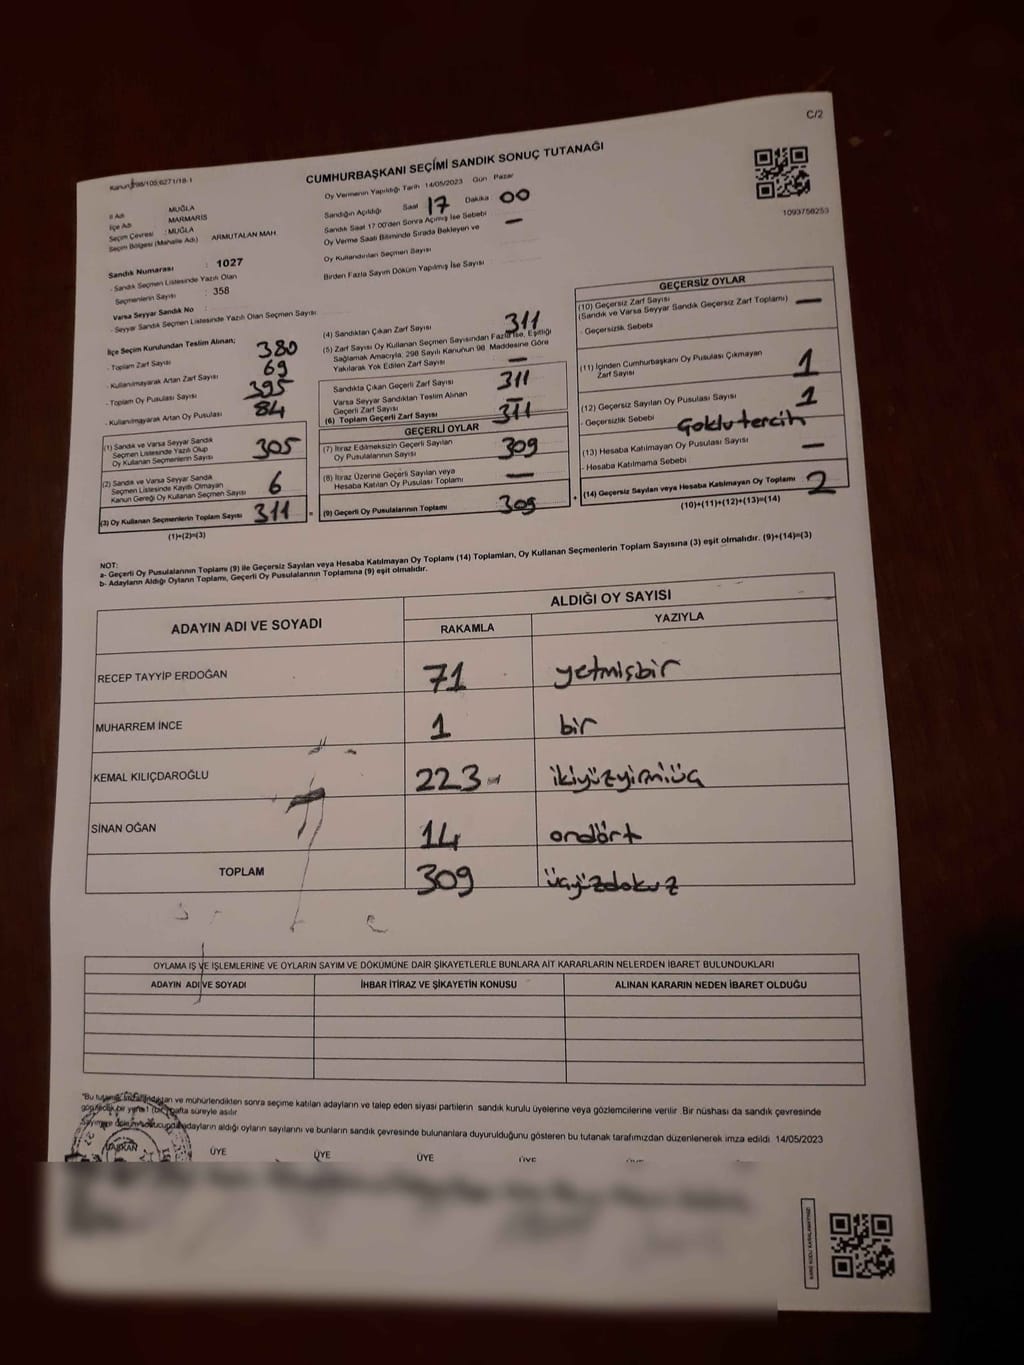 C/2
CUMHURBAŞKANI SEÇİMİ SANDIK SONUÇ TUTANAĞI
1093758253
İl Adı MUĞLA
İlçe Adı MARMARİS
Seçim Çevresi : MUĞLA
Seçim Bölgesi (Mahalle Adı) ARMUTALAN MAH.
Sandık Numarası : 1027
- Sandık Seçmen Listesinde Yazılı Olan
Seçmenlerin Sayısı : 358
Varsa Seyyar Sandık No :
- Seyyar Sandık Seçmen Listesinde Yazılı Olan Seçmen Sayısı :
Oy Vermenin Yapıldığı Tarih 14/05/2023 Gün Pazar
Sandığın Açıldığı Saat 17 Dakika 00
Sandık Saat 17 00'den Sonra Açılmış İse Sebebi —
Oy Verme Saati Bitiminde Sırada Bekleyen ve
Oy Kullandırılan Seçmen Sayısı
Birden Fazla Sayım Döküm Yapılmış İse Sayısı
İlçe Seçim Kurulundan Teslim Alınan;
- Toplam Zarf Sayısı 380
- Kullanılmayarak Artan Zarf Sayısı 69
- Toplam Oy Pusulası Sayısı 395
- Kullanılmayarak Artan Oy Pusulası 84
(1) Sandık ve Varsa Seyyar Sandık
Seçmen Listesinde Yazılı Olup
Oy Kullanan Seçmenlerin Sayısı 305
(2) Sandık ve Varsa Seyyar Sandık
Seçmen Listesinde Kayıtlı Olmayan
Kanun Gereği Oy Kullanan Seçmen Sayısı 6
(3) Oy Kullanan Seçmenlerin Toplam Sayısı 311 =
(1)+(2)=(3)
(4) Sandıktan Çıkan Zarf Sayısı 311
(5) Zarf Sayısı Oy Kullanan Seçmen Sayısından Fazla İse, Eşitliği
Sağlamak Amacıyla, 298 Sayılı Kanunun 98. Maddesine Göre
Yakılarak Yok Edilen Zarf Sayısı —
Sandıkta Çıkan Geçerli Zarf Sayısı 311
Varsa Seyyar Sandıktan Teslim Alınan
Geçerli Zarf Sayısı —
(6) Toplam Geçerli Zarf Sayısı 311
GEÇERLİ OYLAR
(7) İtiraz Edilmeksizin Geçerli Sayılan
Oy Pusulalarının Sayısı 309
(8) İtiraz Üzerine Geçerli Sayılan veya
Hesaba Katılan Oy Pusulası Toplamı —
(9) Geçerli Oy Pusulalarının Toplamı 309 +
GEÇERSİZ OYLAR
(10) Geçersiz Zarf Sayısı
(Sandık ve Varsa Seyyar Sandık Geçersiz Zarf Toplamı) —
- Geçersizlik Sebebi
(11) İçinden Cumhurbaşkanı Oy Pusulası Çıkmayan
Zarf Sayısı 1
(12) Geçersiz Sayılan Oy Pusulası Sayısı 1
- Geçersizlik Sebebi Çoklu tercih
(13) Hesaba Katılmayan Oy Pusulası Sayısı —
- Hesaba Katılmama Sebebi
(14) Geçersiz Sayılan veya Hesaba Katılmayan Oy Toplamı 2
(10)+(11)+(12)+(13)=(14)
NOT:
a- Geçerli Oy Pusulalarının Toplamı (9) ile Geçersiz Sayılan veya Hesaba Katılmayan Oy Toplamı (14) Toplamları, Oy Kullanan Seçmenlerin Toplam Sayısına (3) eşit olmalıdır. (9)+(14)=(3)
b- Adayların Aldığı Oyların Toplamı, Geçerli Oy Pusulalarının Toplamına (9) eşit olmalıdır.
ADAYIN ADI VE SOYADI ALDIĞI OY SAYISI
RAKAMLA YAZIYLA
RECEP TAYYİP ERDOĞAN 71 yetmişbir
MUHARREM İNCE 1 bir
KEMAL KILIÇDAROĞLU 223 ikiyüzyirmiüç
SİNAN OĞAN 14 ondört
TOPLAM 309 üçyüzdokuz
OYLAMA İŞ VE İŞLEMLERİNE VE OYLARIN SAYIM VE DÖKÜMÜNE DAİR ŞİKAYETLERLE BUNLARA AİT KARARLARIN NELERDEN İBARET BULUNDUKLARI
ADAYIN ADI VE SOYADI İHBAR İTİRAZ VE ŞİKAYETİN KONUSU ALINAN KARARIN NEDEN İBARET OLDUĞU
ve mühürlendikten sonra seçime katılan adayların ve talep eden siyasi partilerin sandık kurulu üyelerine veya gözlemcilerine verilir. Bir nüshası da sandık çevresinde
hafta süreyle asılır
adayların aldığı oyların sayılarını ve bunların sandık çevresinde bulunanlara duyurulduğunu gösteren bu tutanak tarafımızdan düzenlenerek imza edildi 14/05/2023
BAŞKAN ÜYE ÜYE ÜYE ÜYE